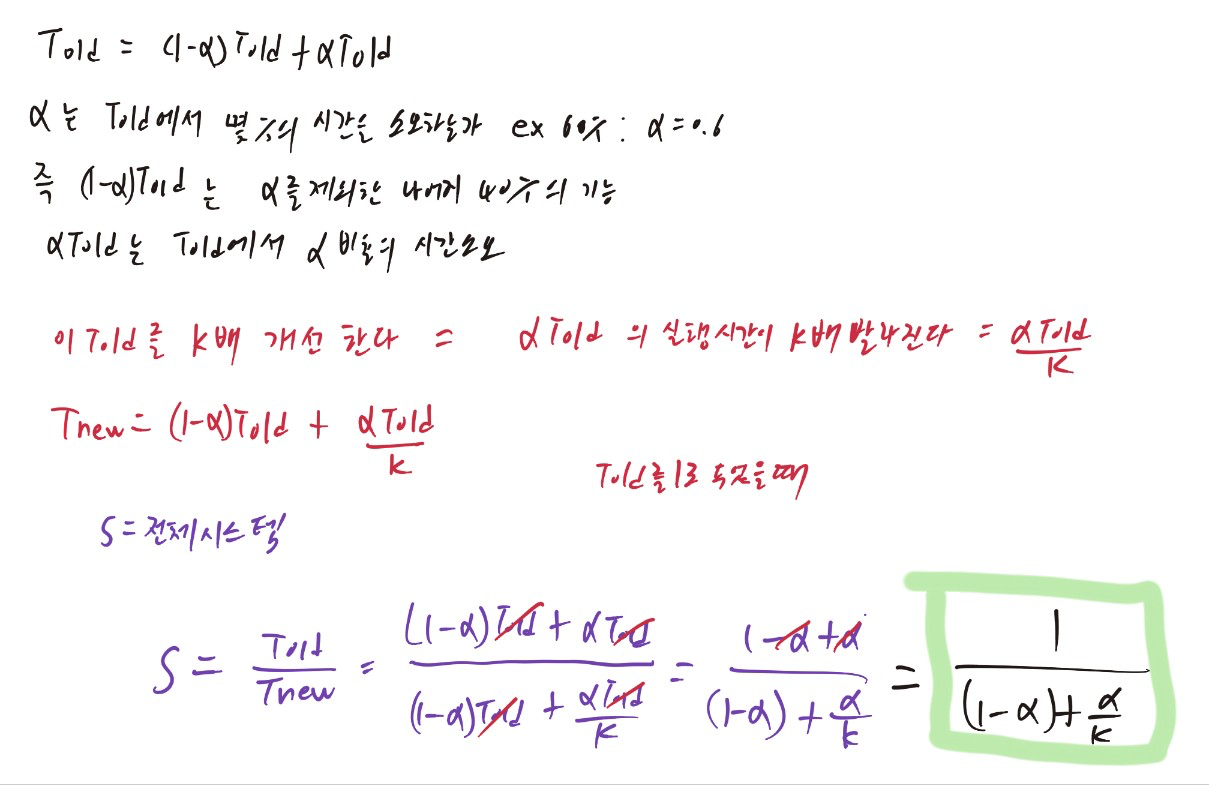 Told = (1-α)Told + αTold
α는 Told에서 몇 %의 시간을 소요하는가 ex 60% : α=0.6
즉 (1-α)Told 는 α를 제외한 나머지 40%의 기능
αTold는 Told에서 α 비율의 시간소요
이 Told를 k배 개선 한다 = αTold 의 실행시간이 k배 빨라진다 = αTold/K
Tnew = (1-α)Told + αTold/k
Told를 1로 두었을때
S = 전체시스템
S = Told/Tnew = ((1-α)Told + αTold)/((1-α)Told + αTold/K) = (1-α+α)/((1-α) + α/k) = 1/((1-α)+α/k)